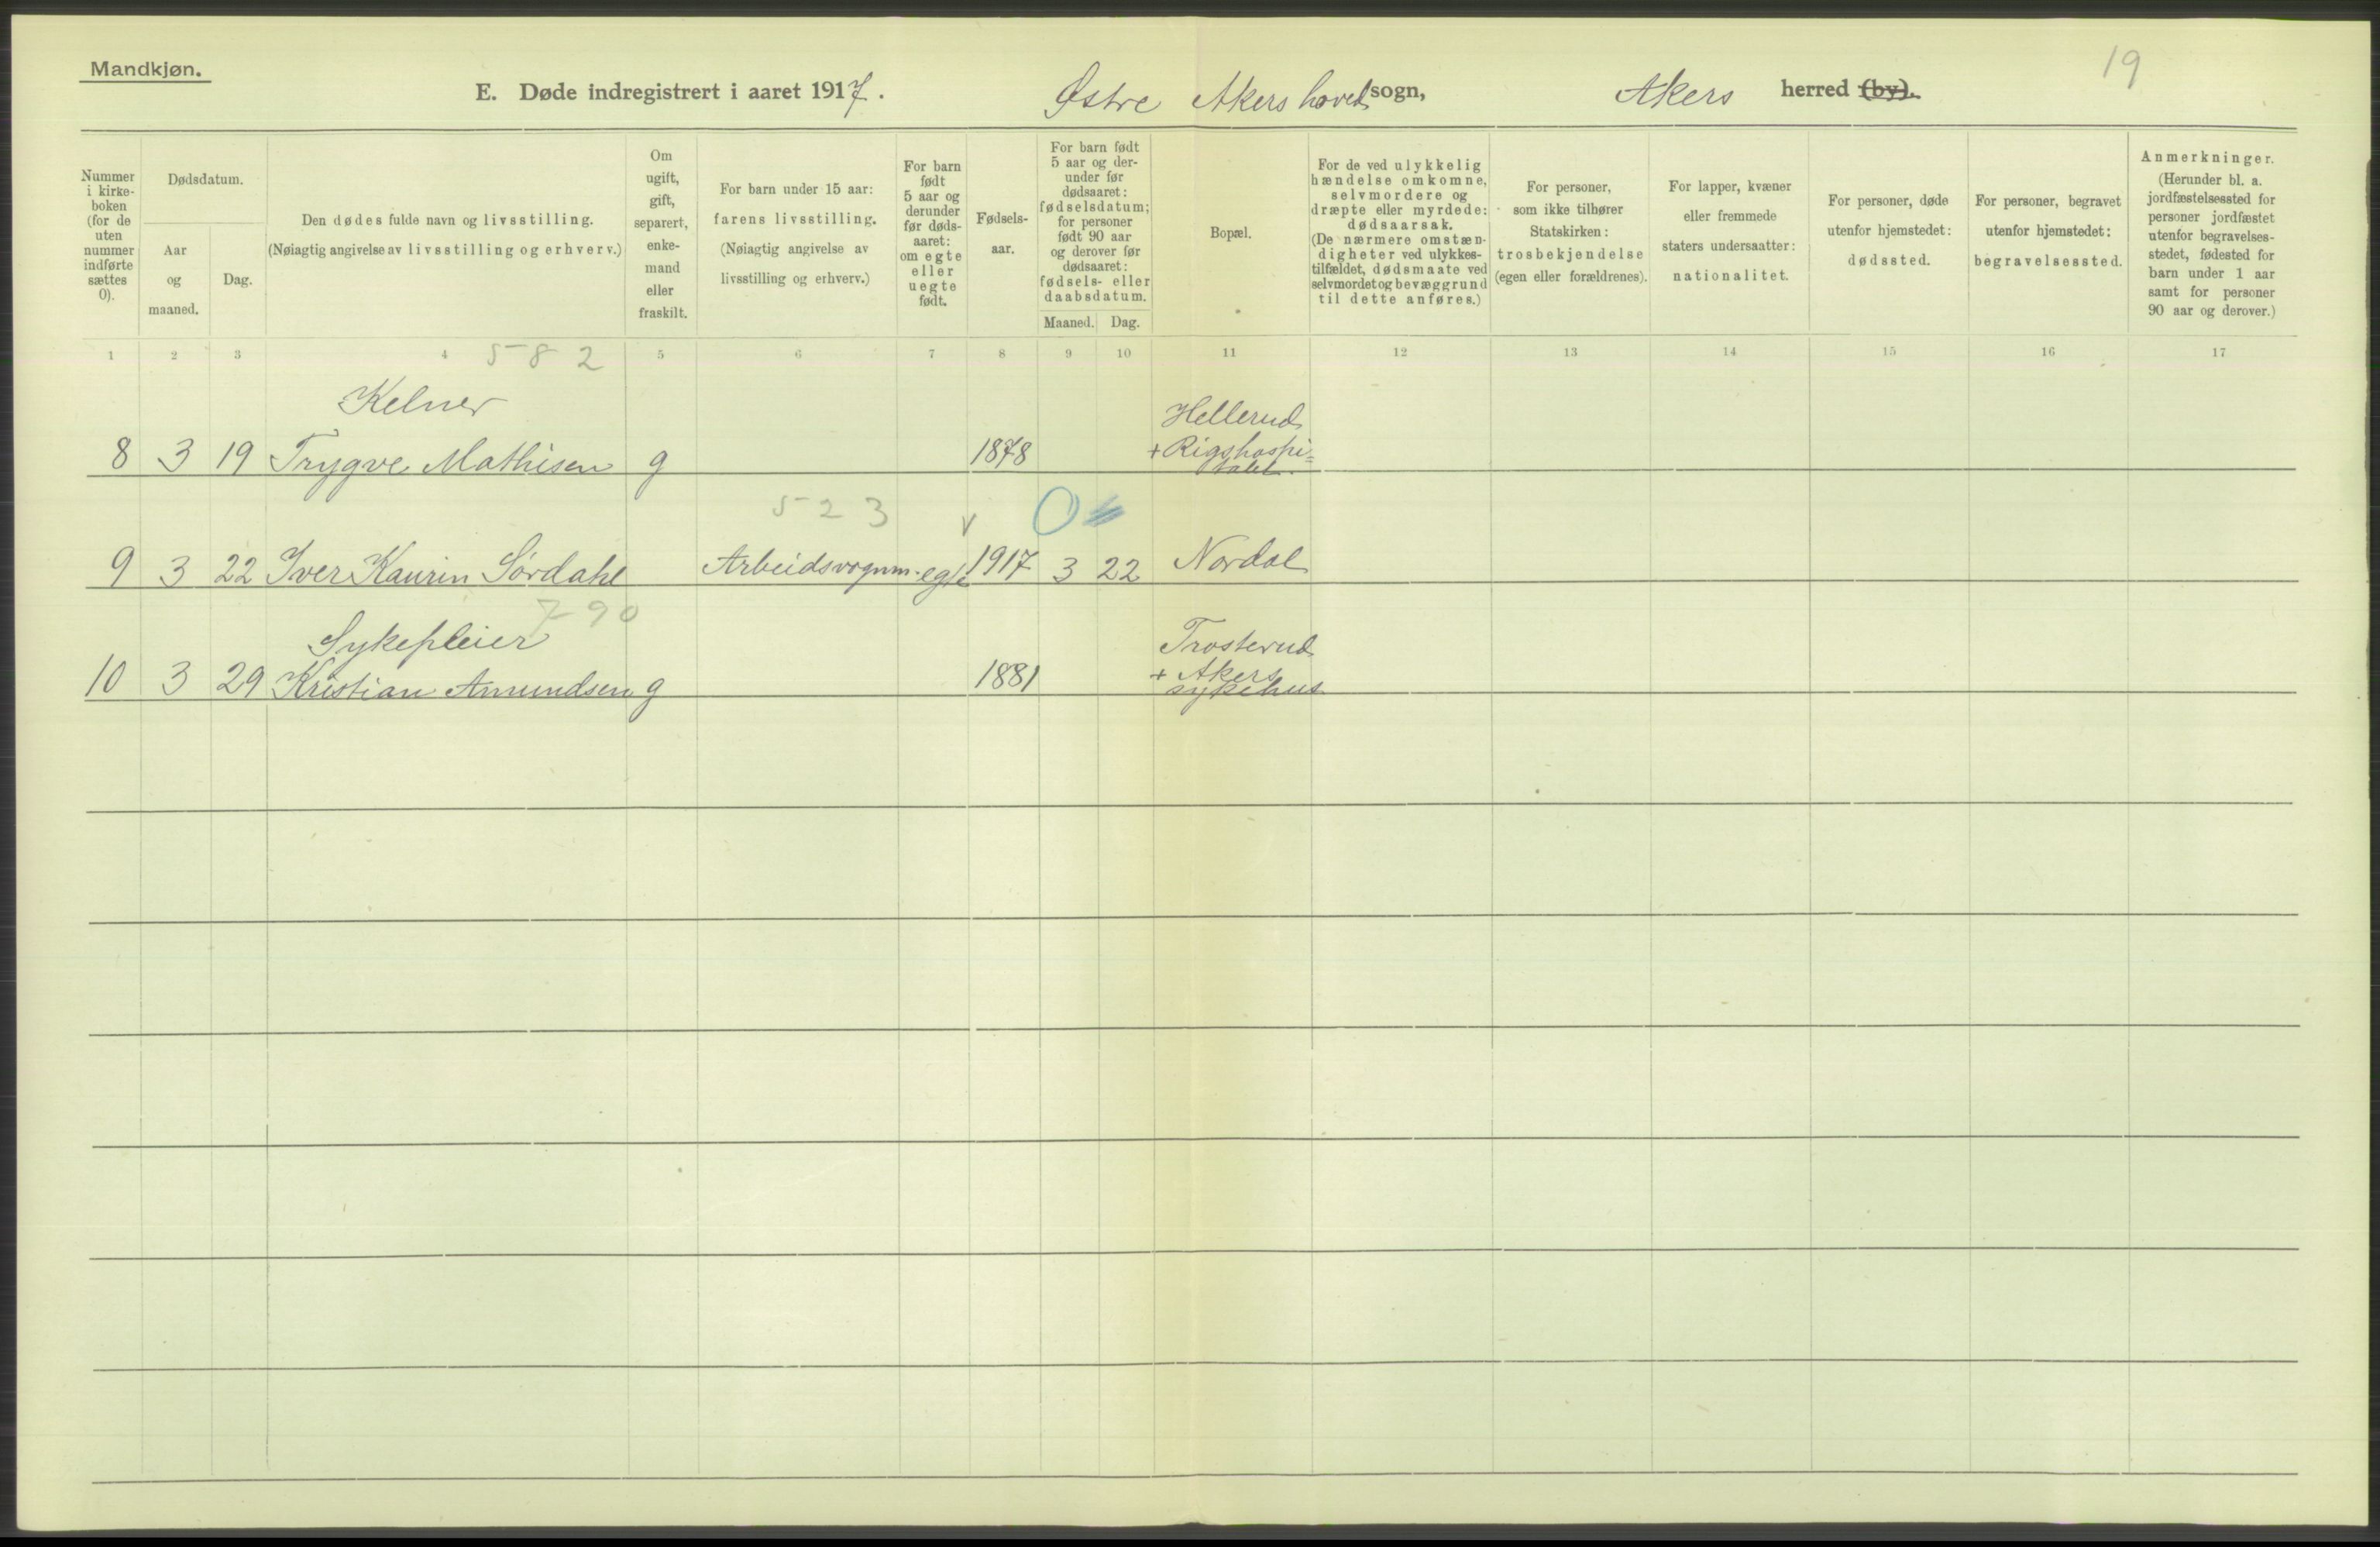 Mandkjøn.
19
E. Døde indregistrert i aaret 1917. Østre Akers hovedsogn, Akers herred (by).
Nummer i kirke-boken (for de uten nummer indførte sættes 0).
Dødsdatum.
Aar og maaned.
Dag.
Den dødes fulde navn og livsstilling.
(Nøiagtig angivelse av livsstilling og erhverv.)
Om ugift, gift, separert, enke-mand eller fraskilt.
For barn under 15 aar: farens livsstilling.
(Nøiagtig angivelse av livsstilling og erhverv.)
For barn født 5 aar og derunder før døds-aaret: om egte eller uegte født.
Fødsels-aar.
For barn født 5 aar og der-under før dødsaaret: fødselsdatum; for personer født 90 aar og derover før dødsaaret: fødsels- eller daabsdatum.
Maaned. Dag.
Bopæl.
For de ved ulykkelig hændelse omkomne, selvmordere og dræpte eller myrdede: dødsaarsak.
(De nærmere omstæn-digheter ved ulykkes-tilfældet, dødsmaate ved selvmordet og bevæggrund til dette anføres.)
For personer, som ikke tilhører Statskirken: trosbekjendelse (egen eller forældrenes).
For lapper, kvæner eller fremmede staters undersaatter: nationalitet.
For personer, døde utenfor hjemstedet: dødssted.
For personer, begravet utenfor hjemstedet: begravelsessted.
Anmerkninger.
(Herunder bl. a. jordfæstelsessted for personer jordfæstet utenfor begravelses-stedet, fødested for barn under 1 aar samt for personer 90 aar og derover.)
1 2 3 4 5 6 7 8 9 10 11 12 13 14 15 16 17
582
Kelner
Hellerud
8 3 19 Trygve Mathisen g 1878 + Rigshospi=
talet.
523 0
9 3 22 Iver Kaurin Sørdahl Arbeidsvognm. egte 1917 3 22 Nordal
790
Sykepleier
Trosterud
10 3 29 Kristian Amundsen g 1881 + Akers
sykehus